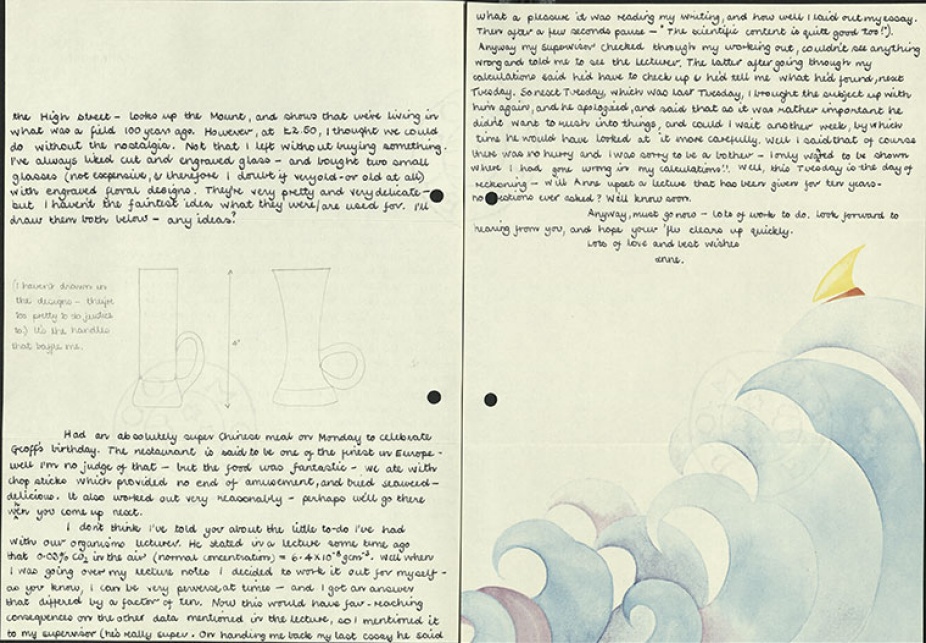 the High Street - looks up the Mount, and shows that we're living in
what was a field 100 years ago. However, at £2.50, I thought we could
do without the nostalgia. Not that I left without buying something.
I've always liked cut and engraved glass - and bought two small
glasses (not expensive, & therefore I doubt if very old - or old at all)
with engraved floral designs. They're very pretty and very delicate -
but I haven't the faintest idea what they were/are used for. I'll
draw them both below - any ideas?
(I haven't drawn in
the designs - they're
too pretty to do justice
to.) It's the handles
that baffle me.
4"
Had an absolutely super Chinese meal on Monday to celebrate
Geoff's birthday. The restaurant is said to be one of the finest in Europe -
well I'm no judge of that - but the food was fantastic - we ate with
chop sticks which provided no end of amusement, and fried seaweed -
delicious. It also worked out very reasonably - perhaps we'll go there
when you come up next.
I don't think I've told you about the little to-do I've had
with our organisms lecturer. He stated in a lecture some time ago
that 0.03% CO₂ in the air (normal concentration) = 6.4 x 10⁻⁸ gcm⁻³. Well when
I was going over my lecture notes I decided to work it out for myself -
as you know, I can be very perverse at times - and I got an answer
that differed by a factor of ten. Now this would have far-reaching
consequences on the other data mentioned in the lecture, so I mentioned it
to my supervisor (he's really super. On handing me back my last essay he said
what a pleasure it was reading my writing, and how well I laid out my essay.
Then after a few seconds pause - "The scientific content is quite good too!").
Anyway my supervisor checked through my working out, couldn't see anything
wrong and told me to see the lecturer. The latter after going through my
calculations said he'd have to check up & he'd tell me what he'd found, next
Tuesday. So next Tuesday, which was last Tuesday, I brought the subject up with
him again, and he apologised, and said that as it was rather important he
didn't want to rush into things, and could I wait another week, by which
time he would have looked at it more carefully. Well I said that of course
there was no hurry and I was sorry to be a bother - I only wanted to be shown
where I had gone wrong in my calculations!! Well, this Tuesday is the day of
reckoning - will Anne upset a lecture that has been given for ten years -
no estions ever asked? We'll know soon.
Anyway, must go now - lots of work to do. Look forward to
hearing from you, and hope your 'flu clears up quickly.
Lots of love and best wishes
Anne.